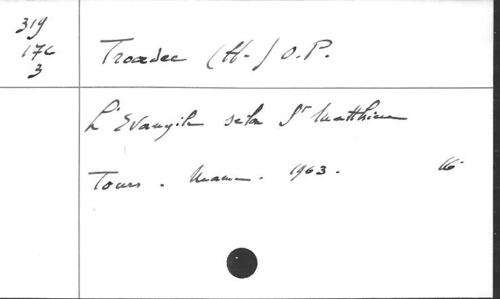 319
176
3
Troadec (H-) O.P.
L'Evangile selon St Matthieu
Tours. Mame. 1963. 16°